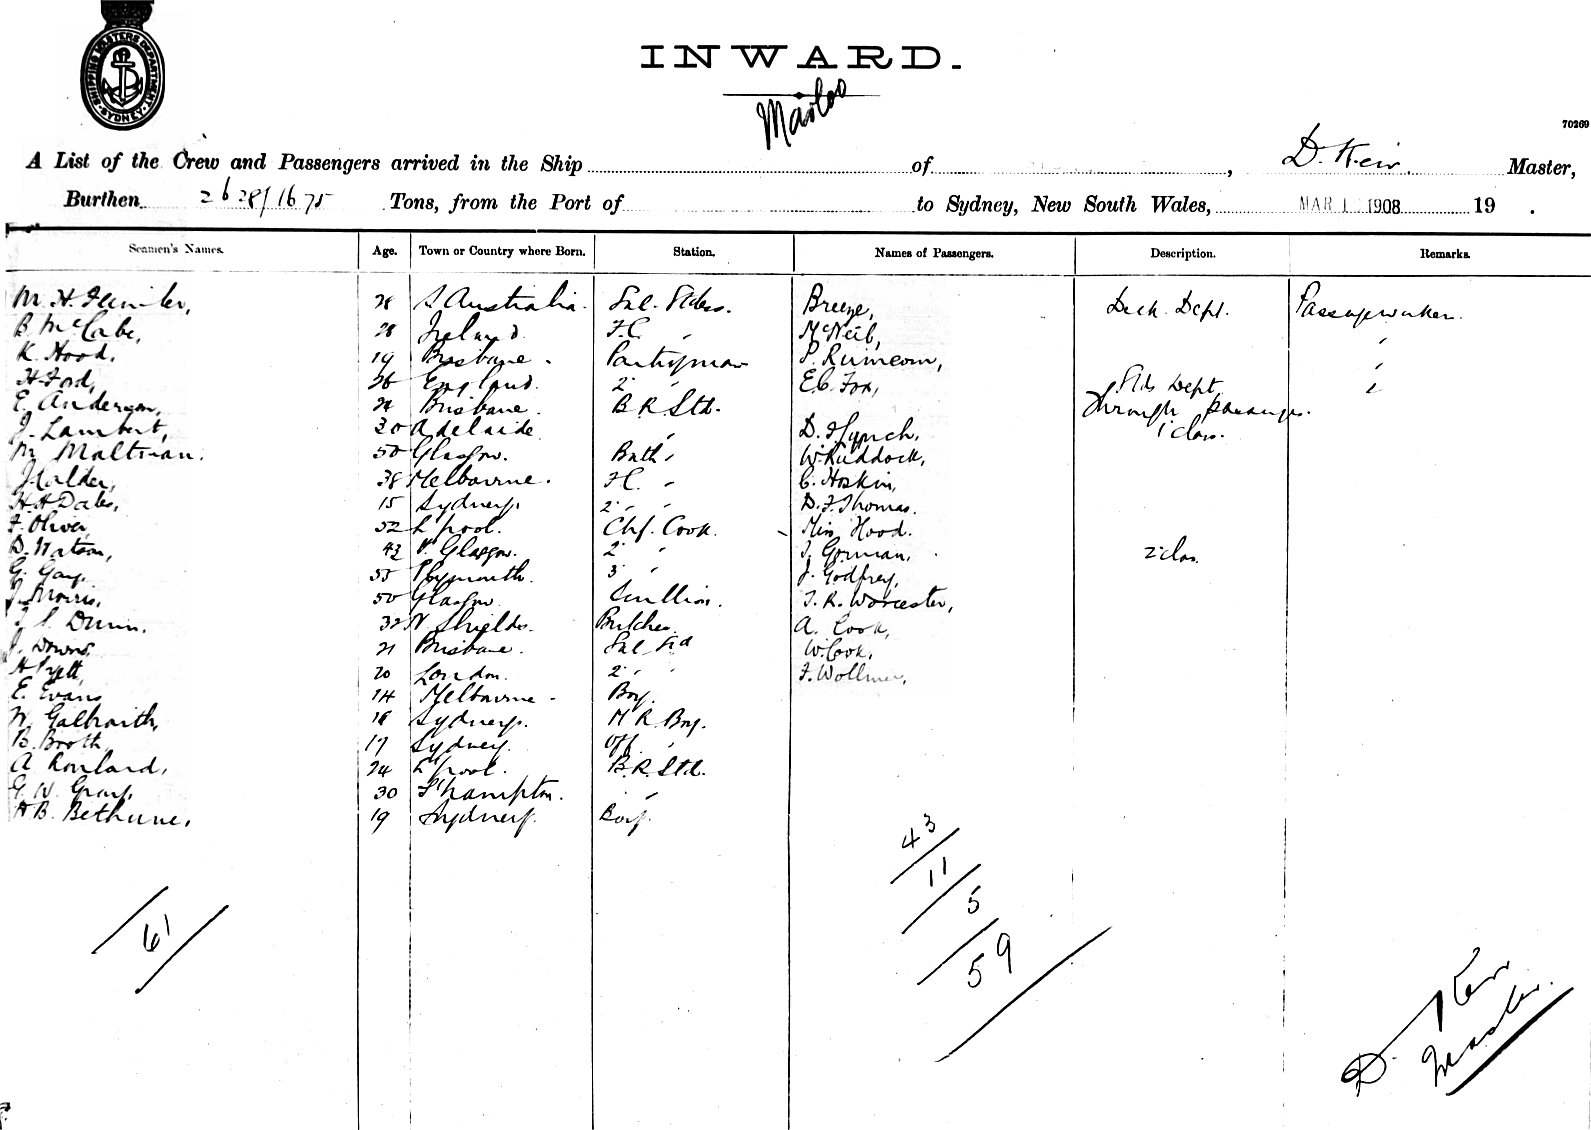 SHIPPING MASTERS DEPARTMENT SYDNEY
INWARD.
Marloo
70269
A List of the Crew and Passengers arrived in the Ship of , D. Keir. Master,
Burthen 2628/1675 Tons, from the Port of to Sydney, New South Wales, MAR 1 1908 19 .
Seamen's Names. Age. Town or Country where Born. Station. Names of Passengers. Description. Remarks.
M. H. 28 S Australia. Breeze, Deck Dept. Passageworker.
B. McCabe, 28 Ireland F.C. " McNeib,
K. Hood, 19 Brisbane. Pantryman P.
H Ford, 26 England. 2" " E.C. Fox, Std Dept
E. Anderson, 21 Brisbane. B R Std. Through passengers.
J. Lambert, 30 Adelaide " D. J Lynch, 1 class.
M Maltman. 50 Glasgow. Bath " W. Ruddock,
J Calder, 38 Melbourne. F.C. " C. Hoskin,
H. H Dales, 15 Sydney. 2" " D. F. Thomas.
F. Oliver, 52 L'pool. Chf. Cook. Miss Hood.
D. Watson, 42 P. Glasgow. 2" " J. Gorman, 2 class.
G. Gay. 55 Plymouth. 3" " J. Godfrey,
J. Morris, 50 Glasgow Scullion. J. R. Worcester,
Dunn. 32 N. Shields. Butcher A. Cook,
J. Downs, 21 Brisbane. W. Cook,
H Pyett, 20 London. 2" " F. Wollmer,
E. Evans 14 Melbourne Boy.
W. Galbraith, 18 Sydney. M R Boy.
B. Booth, 17 Sydney. Off. "
A Rowland, 24 L'pool. B.R. Std.
G. W. Gray, 30 S'hampton. "
H B. Bethune, 19 Sydney. Boy.
43
11
5
59
61
D. Keir
Master